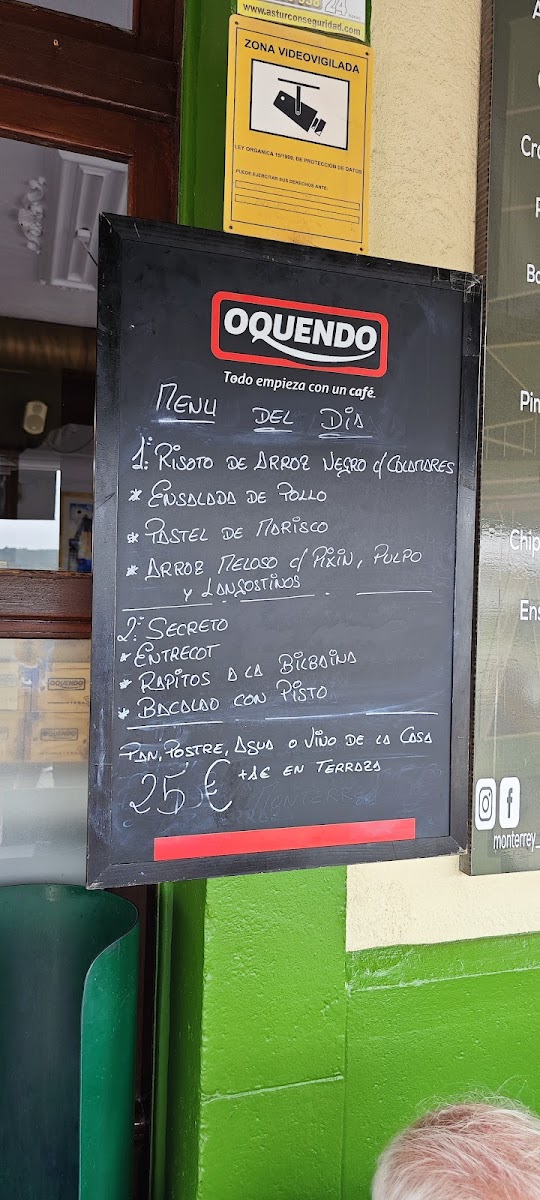 www.asturconseguridad.com
ZONA VIDEOVIGILADA
LEY ORGANICA 15/1999, DE PROTECCION DE DATOS
PUEDE EJERCITAR SUS DERECHOS ANTE:
OQUENDO
Todo empieza con un café.
MENU DEL DIA
1º: RISOTO DE ARROZ NEGRO C/ CALAMARES
* ENSALADA DE POLLO
* PASTEL DE MARISCO
* ARROZ MELOSO C/ PIXIN, PULPO
Y LANGOSTINOS
2º: SECRETO
* ENTRECOT
* RAPITOS A LA BILBAINA
* BACALAO CON PISTO
PAN, POSTRE, AGUA O VINO DE LA CASA
25 € +1€ EN TERRAZA
OQUENDO
Cro
Ba
Pin
Chip
Ens
monterrey_